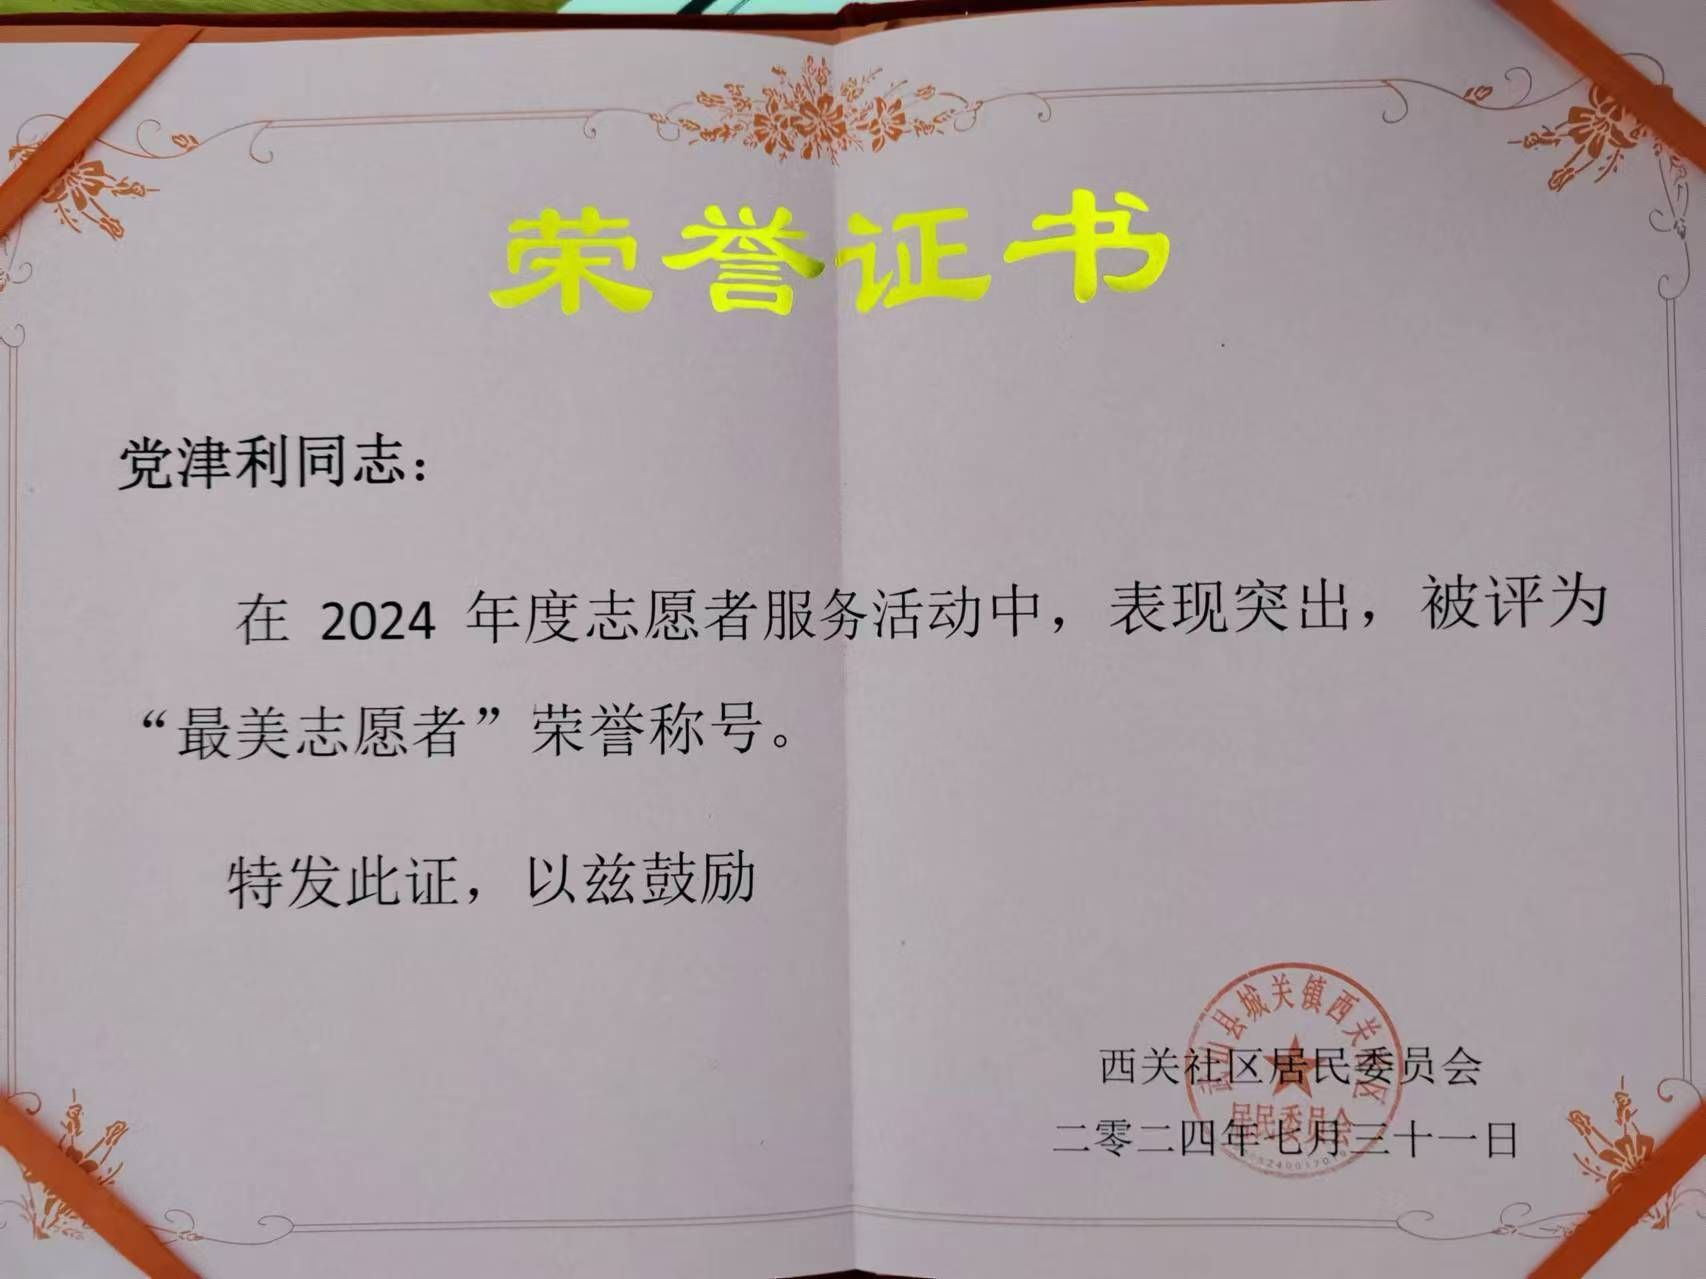 荣誉证书
党津利同志：
在 2024 年度志愿者服务活动中，表现突出，被评为
“最美志愿者”荣誉称号。
特发此证，以兹鼓励
山县城关镇西关
西关社区居民委员会
居民委员会
二零二四年七月三十一日